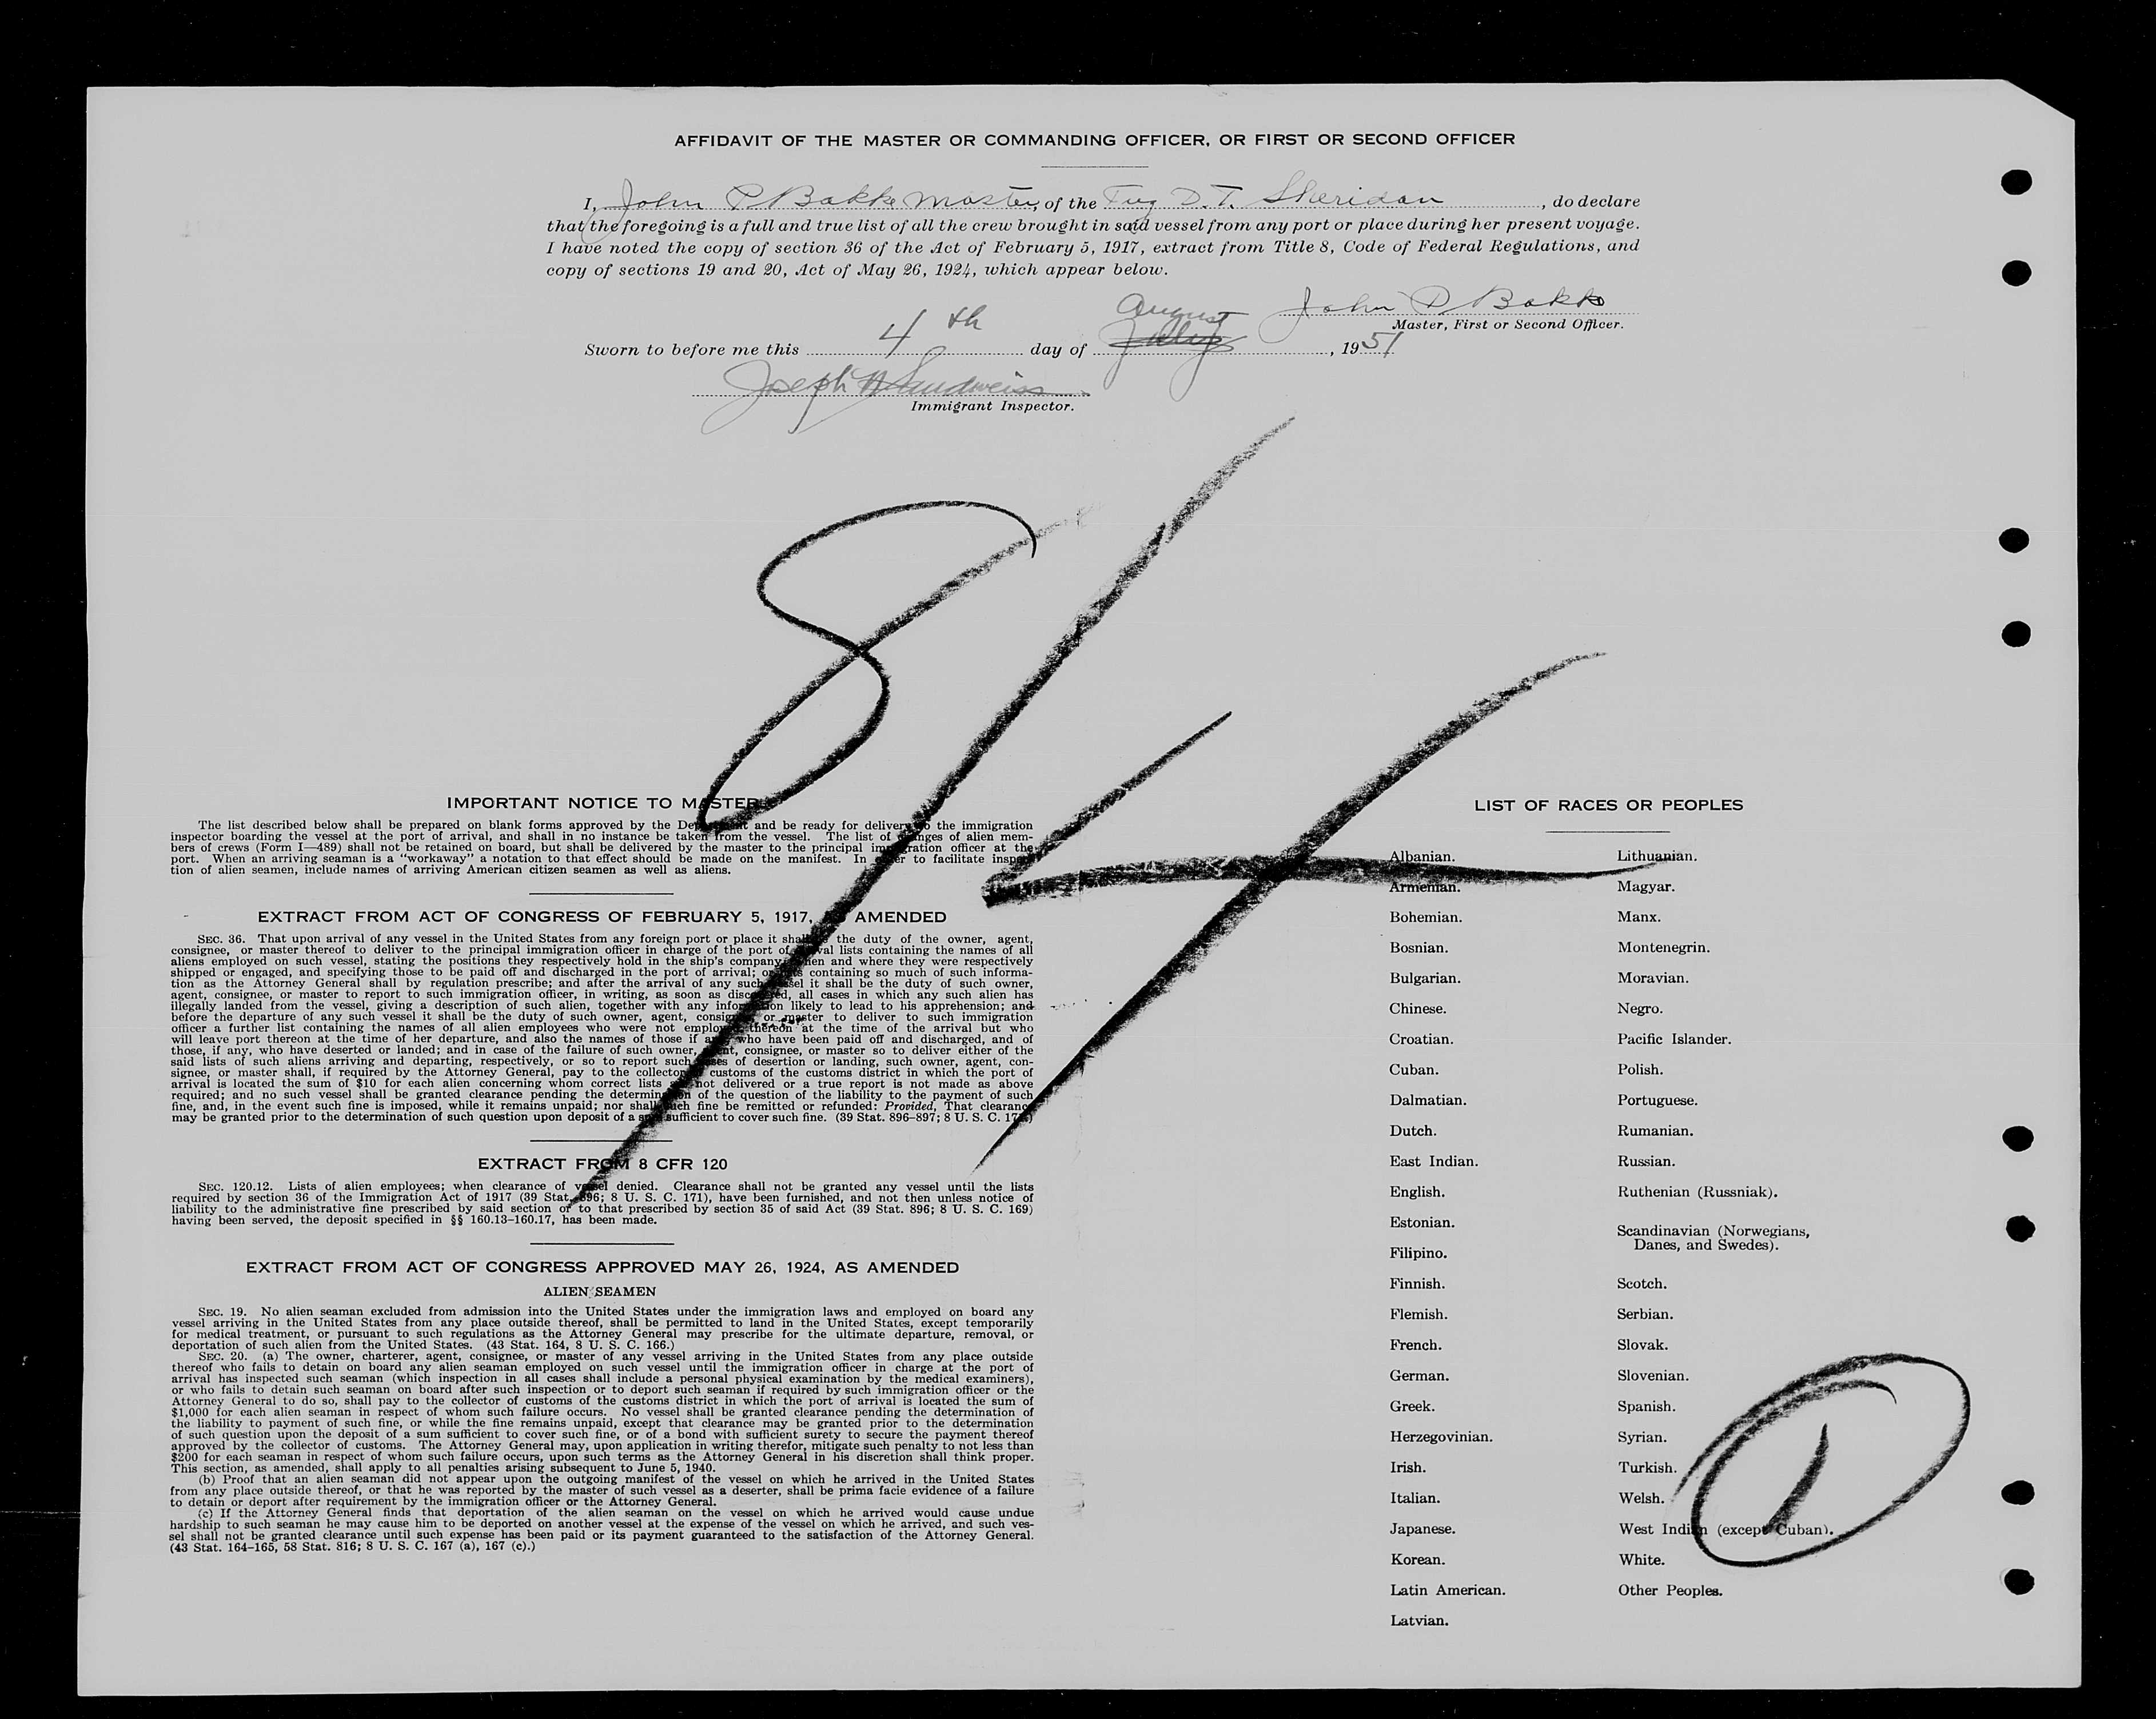 AFFIDAVIT OF THE MASTER OR COMMANDING OFFICER, OR FIRST OR SECOND OFFICER
I, John P Bakke Master, of the Tug D. T. Sheridan, do declare
that the foregoing is a full and true list of all the crew brought in said vessel from any port or place during her present voyage.
I have noted the copy of section 36 of the Act of February 5, 1917, extract from Title 8, Code of Federal Regulations, and
copy of sections 19 and 20, Act of May 26, 1924, which appear below.
John P Bakke
Master, First or Second Officer.
August
Sworn to before me this 4th day of July, 1951
Joseph Sandweiss
Immigrant Inspector.
8/4
IMPORTANT NOTICE TO MASTER
The list described below shall be prepared on blank forms approved by the Department and be ready for delivery to the immigration
inspector boarding the vessel at the port of arrival, and shall in no instance be taken from the vessel. The list of changes of alien mem-
bers of crews (Form I—489) shall not be retained on board, but shall be delivered by the master to the principal immigration officer at the
port. When an arriving seaman is a "workaway" a notation to that effect should be made on the manifest. In order to facilitate inspec-
tion of alien seamen, include names of arriving American citizen seamen as well as aliens.
EXTRACT FROM ACT OF CONGRESS OF FEBRUARY 5, 1917, AS AMENDED
SEC. 36. That upon arrival of any vessel in the United States from any foreign port or place it shall be the duty of the owner, agent,
consignee, or master thereof to deliver to the principal immigration officer in charge of the port of arrival lists containing the names of all
aliens employed on such vessel, stating the positions they respectively hold in the ship's company, when and where they were respectively
shipped or engaged, and specifying those to be paid off and discharged in the port of arrival; or lists containing so much of such informa-
tion as the Attorney General shall by regulation prescribe; and after the arrival of any such vessel it shall be the duty of such owner,
agent, consignee, or master to report to such immigration officer, in writing, as soon as discovered, all cases in which any such alien has
illegally landed from the vessel, giving a description of such alien, together with any information likely to lead to his apprehension; and
before the departure of any such vessel it shall be the duty of such owner, agent, consignee, or master to deliver to such immigration
officer a further list containing the names of all alien employees who were not employed thereon at the time of the arrival but who
will leave port thereon at the time of her departure, and also the names of those if any, who have been paid off and discharged, and of
those, if any, who have deserted or landed; and in case of the failure of such owner, agent, consignee, or master so to deliver either of the
said lists of such aliens arriving and departing, respectively, or so to report such cases of desertion or landing, such owner, agent, con-
signee, or master shall, if required by the Attorney General, pay to the collector of customs of the customs district in which the port of
arrival is located the sum of $10 for each alien concerning whom correct lists are not delivered or a true report is not made as above
required; and no such vessel shall be granted clearance pending the determination of the question of the liability to the payment of such
fine, and, in the event such fine is imposed, while it remains unpaid; nor shall such fine be remitted or refunded: Provided, That clearance
may be granted prior to the determination of such question upon deposit of a sum sufficient to cover such fine. (39 Stat. 896–897; 8 U. S. C. 171)
EXTRACT FROM 8 CFR 120
SEC. 120.12. Lists of alien employees; when clearance of vessel denied. Clearance shall not be granted any vessel until the lists
required by section 36 of the Immigration Act of 1917 (39 Stat. 896; 8 U. S. C. 171), have been furnished, and not then unless notice of
liability to the administrative fine prescribed by said section or to that prescribed by section 35 of said Act (39 Stat. 896; 8 U. S. C. 169)
having been served, the deposit specified in §§ 160.13–160.17, has been made.
EXTRACT FROM ACT OF CONGRESS APPROVED MAY 26, 1924, AS AMENDED
ALIEN SEAMEN
SEC. 19. No alien seaman excluded from admission into the United States under the immigration laws and employed on board any
vessel arriving in the United States from any place outside thereof, shall be permitted to land in the United States, except temporarily
for medical treatment, or pursuant to such regulations as the Attorney General may prescribe for the ultimate departure, removal, or
deportation of such alien from the United States. (43 Stat. 164, 8 U. S. C. 166.)
SEC. 20. (a) The owner, charterer, agent, consignee, or master of any vessel arriving in the United States from any place outside
thereof who fails to detain on board any alien seaman employed on such vessel until the immigration officer in charge at the port of
arrival has inspected such seaman (which inspection in all cases shall include a personal physical examination by the medical examiners),
or who fails to detain such seaman on board after such inspection or to deport such seaman if required by such immigration officer or the
Attorney General to do so, shall pay to the collector of customs of the customs district in which the port of arrival is located the sum of
$1,000 for each alien seaman in respect of whom such failure occurs. No vessel shall be granted clearance pending the determination of
the liability to payment of such fine, or while the fine remains unpaid, except that clearance may be granted prior to the determination
of such question upon the deposit of a sum sufficient to cover such fine, or of a bond with sufficient surety to secure the payment thereof
approved by the collector of customs. The Attorney General may, upon application in writing therefor, mitigate such penalty to not less than
$200 for each seaman in respect of whom such failure occurs, upon such terms as the Attorney General in his discretion shall think proper.
This section, as amended, shall apply to all penalties arising subsequent to June 5, 1940.
(b) Proof that an alien seaman did not appear upon the outgoing manifest of the vessel on which he arrived in the United States
from any place outside thereof, or that he was reported by the master of such vessel as a deserter, shall be prima facie evidence of a failure
to detain or deport after requirement by the immigration officer or the Attorney General.
(c) If the Attorney General finds that deportation of the alien seaman on the vessel on which he arrived would cause undue
hardship to such seaman he may cause him to be deported on another vessel at the expense of the vessel on which he arrived, and such ves-
sel shall not be granted clearance until such expense has been paid or its payment guaranteed to the satisfaction of the Attorney General.
(43 Stat. 164–165, 58 Stat. 816; 8 U. S. C. 167 (a), 167 (c).)
LIST OF RACES OR PEOPLES
Albanian.
Armenian.
Bohemian.
Bosnian.
Bulgarian.
Chinese.
Croatian.
Cuban.
Dalmatian.
Dutch.
East Indian.
English.
Estonian.
Filipino.
Finnish.
Flemish.
French.
German.
Greek.
Herzegovinian.
Irish.
Italian.
Japanese.
Korean.
Latin American.
Latvian.
Lithuanian.
Magyar.
Manx.
Montenegrin.
Moravian.
Negro.
Pacific Islander.
Polish.
Portuguese.
Rumanian.
Russian.
Ruthenian (Russniak).
Scandinavian (Norwegians,
Danes, and Swedes).
Scotch.
Serbian.
Slovak.
Slovenian.
Spanish.
Syrian.
Turkish.
Welsh.
West Indian (except Cuban).
White.
Other Peoples.
1